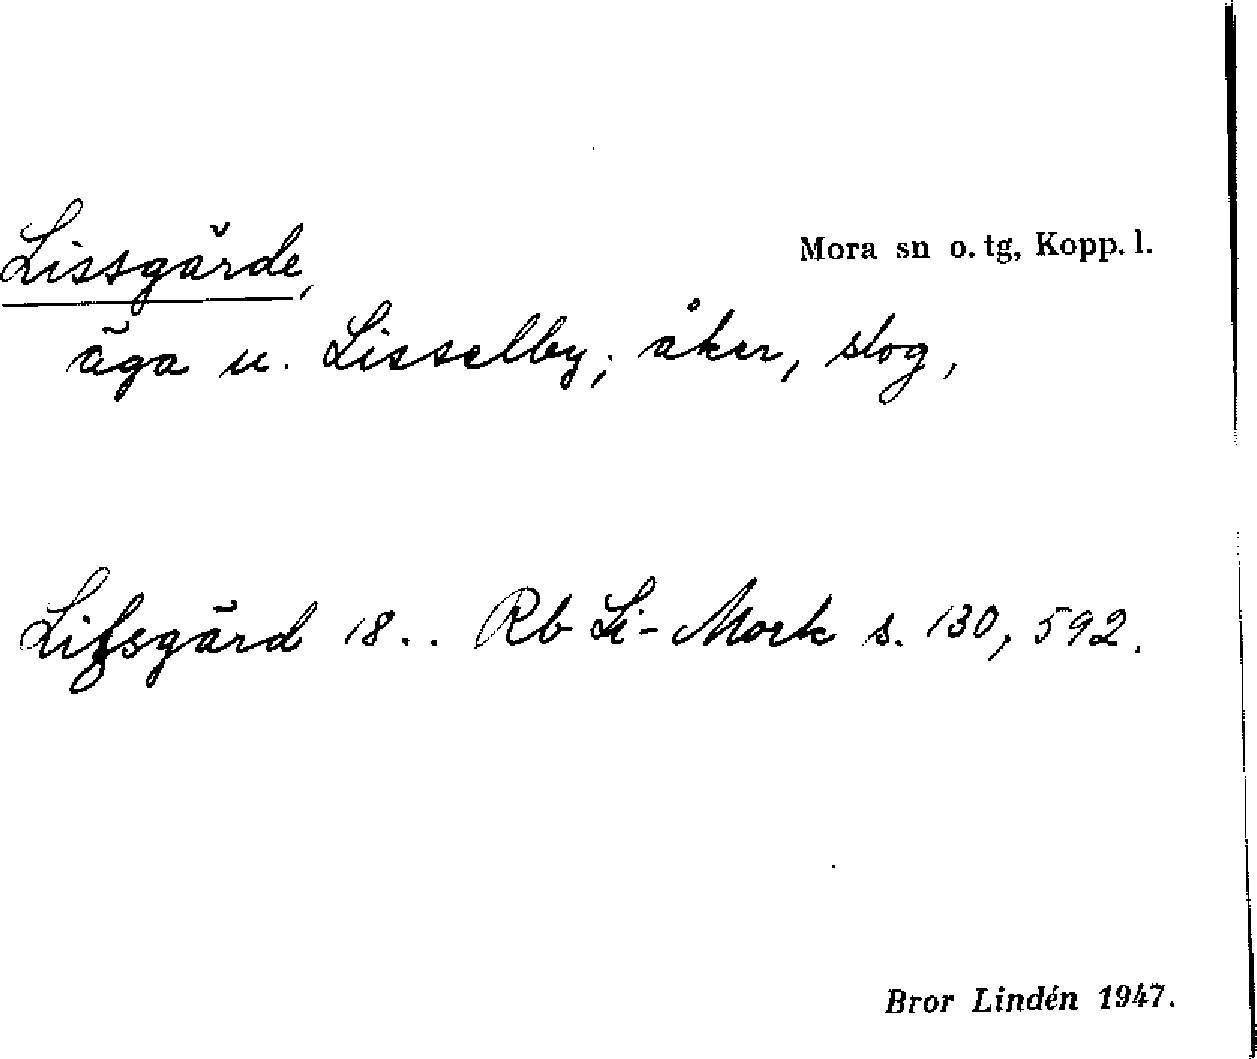 Lissgärde,
Mora sn o. tg, Kopp. l.
äga u. Lisselby; åker, slog,
Lifsgärd 18.. Rb Li-Mork s. 130, 592.
Bror Lindén 1947.